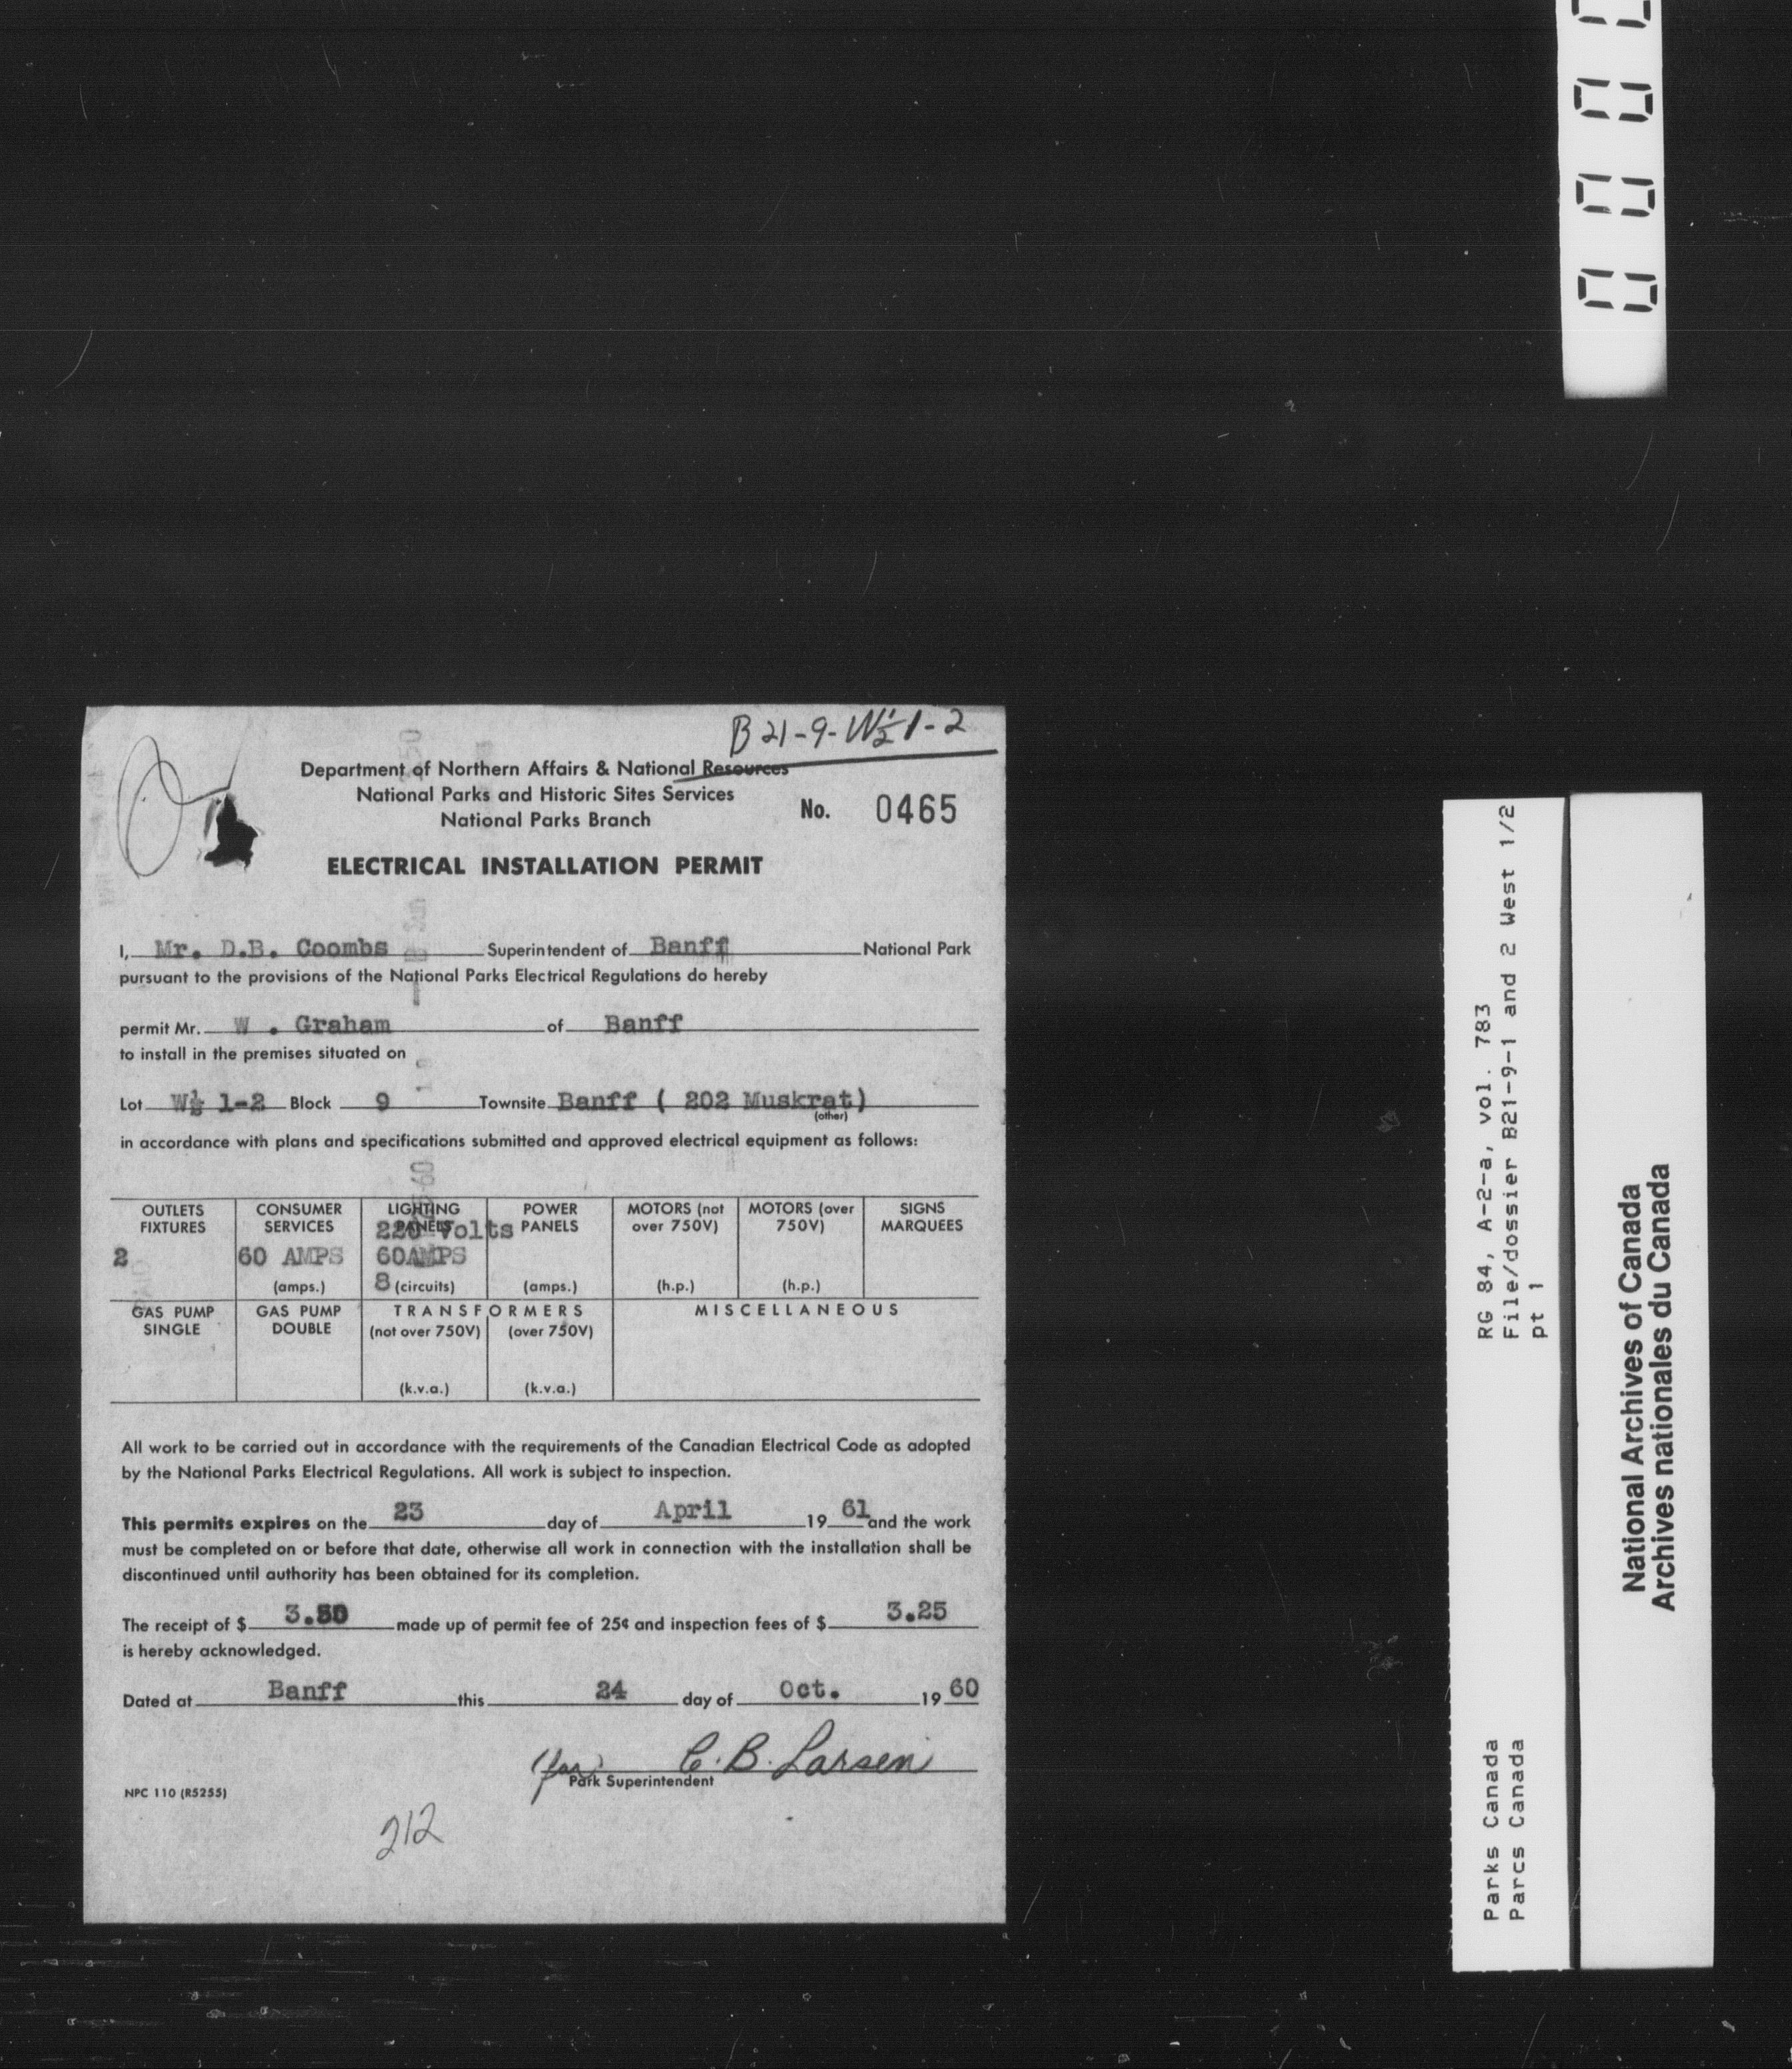 B 21-9-W½ 1-2
Department of Northern Affairs & National Resources
National Parks and Historic Sites Services
National Parks Branch
No. 0465
ELECTRICAL INSTALLATION PERMIT
I, Mr. D.B. Coombs Superintendent of Banff National Park
pursuant to the provisions of the National Parks Electrical Regulations do hereby
permit Mr. W . Graham of Banff
to install in the premises situated on
Lot W½ 1-2 Block 9 Townsite Banff ( 202 Muskrat)
(other)
in accordance with plans and specifications submitted and approved electrical equipment as follows:
OUTLETS CONSUMER LIGHTING POWER MOTORS (not MOTORS (over SIGNS
FIXTURES SERVICES PANELS PANELS over 750V) 750V) MARQUEES
220 Volts
2 60 AMPS 60AMPS
(amps.) 8 (circuits) (amps.) (h.p.) (h.p.)
GAS PUMP GAS PUMP TRANSFORMERS MISCELLANEOUS
SINGLE DOUBLE (not over 750V) (over 750V)
(k.v.a.) (k.v.a.)
All work to be carried out in accordance with the requirements of the Canadian Electrical Code as adopted
by the National Parks Electrical Regulations. All work is subject to inspection.
This permits expires on the 23 day of April 19 61 and the work
must be completed on or before that date, otherwise all work in connection with the installation shall be
discontinued until authority has been obtained for its completion.
The receipt of $ 3.50 made up of permit fee of 25¢ and inspection fees of $ 3.25
is hereby acknowledged.
Dated at Banff this 24 day of Oct. 19 60
(for) C. B. Larsen
Park Superintendent
NPC 110 (R5255)
212
RG 84, A-2-a, vol. 783
File/dossier B21-9-1 and 2 West 1/2
pt 1
Parks Canada
Parcs Canada
National Archives of Canada
Archives nationales du Canada